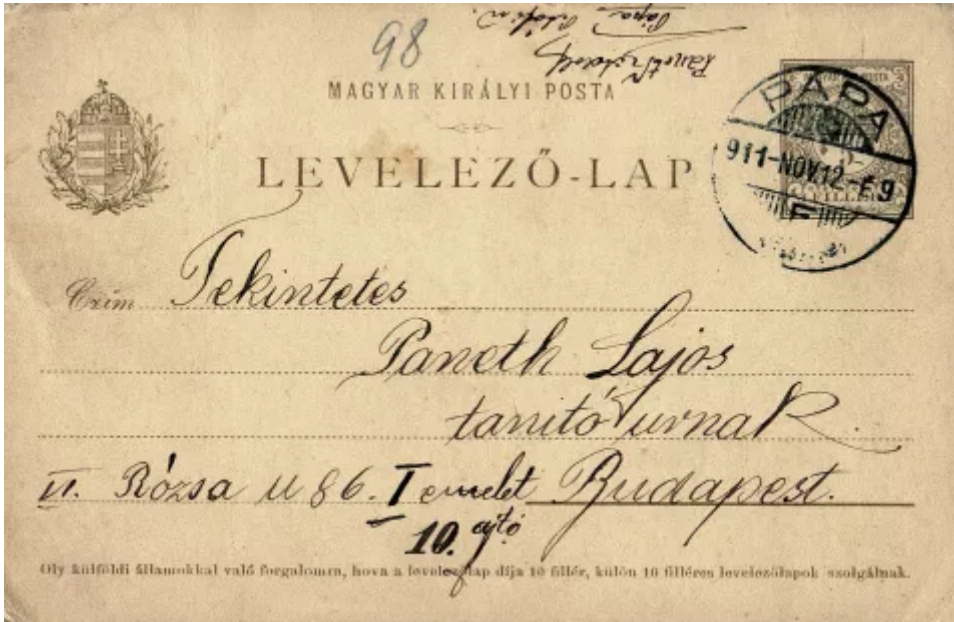 98
Pápa
MAGYAR KIRÁLYI POSTA
LEVELEZŐ-LAP
PÁPA
911-NOV.12-É9
Czím Tekintetes
Paneth Lajos
tanító urnak
VI. Rózsa u 86. I emelet Budapest.
10. ajtó
Oly külföldi államokkal való forgalomra, hova a levelezőlap díja 10 fillér, külön 10 filléres levelezőlapok szolgálnak.